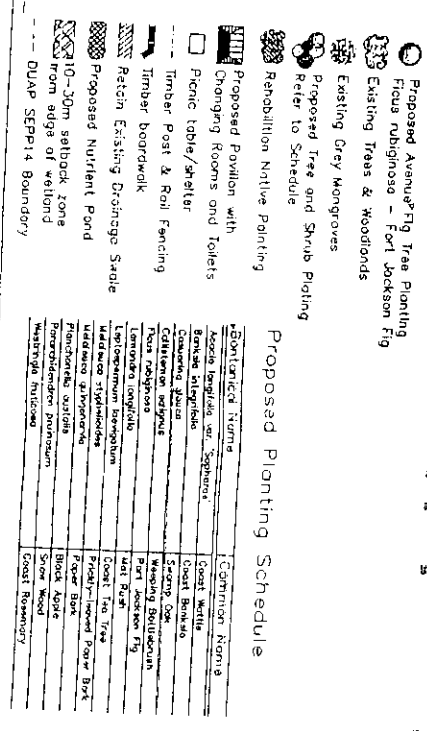 Proposed Avenue Fig Tree Planting
Ficus rubiginosa - Port Jackson Fig
Existing Trees & Woodlands
Existing Grey Mangroves
Proposed Tree and Shrub Plating
Refer to Schedule
Rehabilition Native Palnting
Proposed Pavilion with
Changing Rooms and Toilets
Picnic table/shelter
Timber Post & Rail Fencing
Timber boardwalk
Retain Existing Drainage Swale
Proposed Nutrient Pond
10-30m setback zone
from edge of wetland
DUAP SEPP14 Boundary
Proposed Planting Schedule
Bontanical Name Common Name
Acacia longifolia var. 'Sophorae' Coast Wattle
Banksia integrifolia Coast Banksia
Casuarina glauca Swamp Oak
Callistemon salignus Weeping Bottlebrush
Ficus rubiginosa Port Jackson Fig
Lomandra longifolia Mat Rush
Leptospermum laevigatum Coast Tea Tree
Melaleuca styphelioides Prickly-leaved Paper Bark
Melaleuca quinquenervia Paper Bark
Planchonella australis Black Apple
Pararchidendron pruinosum Snow Wood
Westringia fruticosa Coast Rosemary